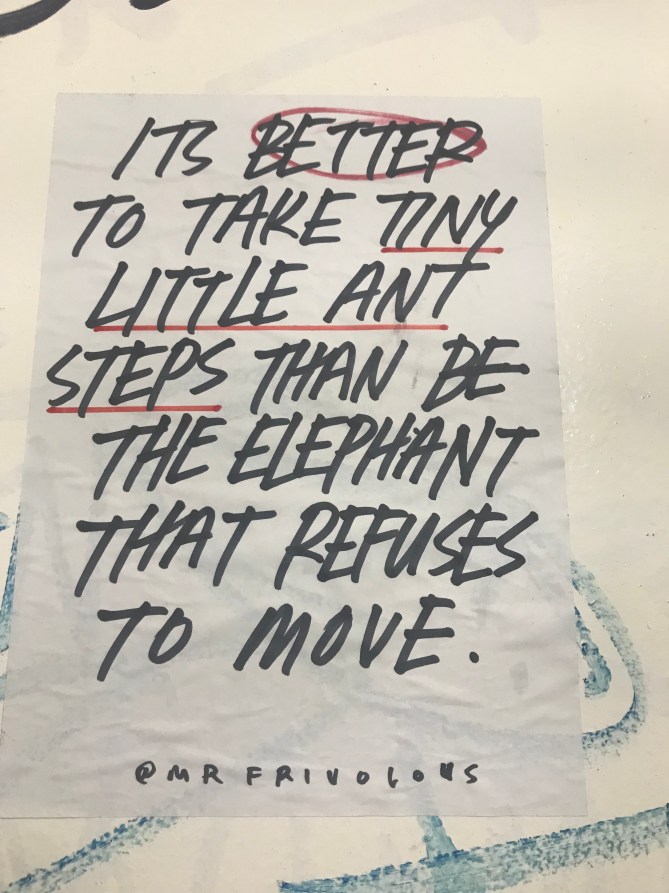 ITS BETTER
TO TAKE TINY
LITTLE ANT
STEPS THAN BE
THE ELEPHANT
THAT REFUSES
TO MOVE.
@MRFRIVOLOUS